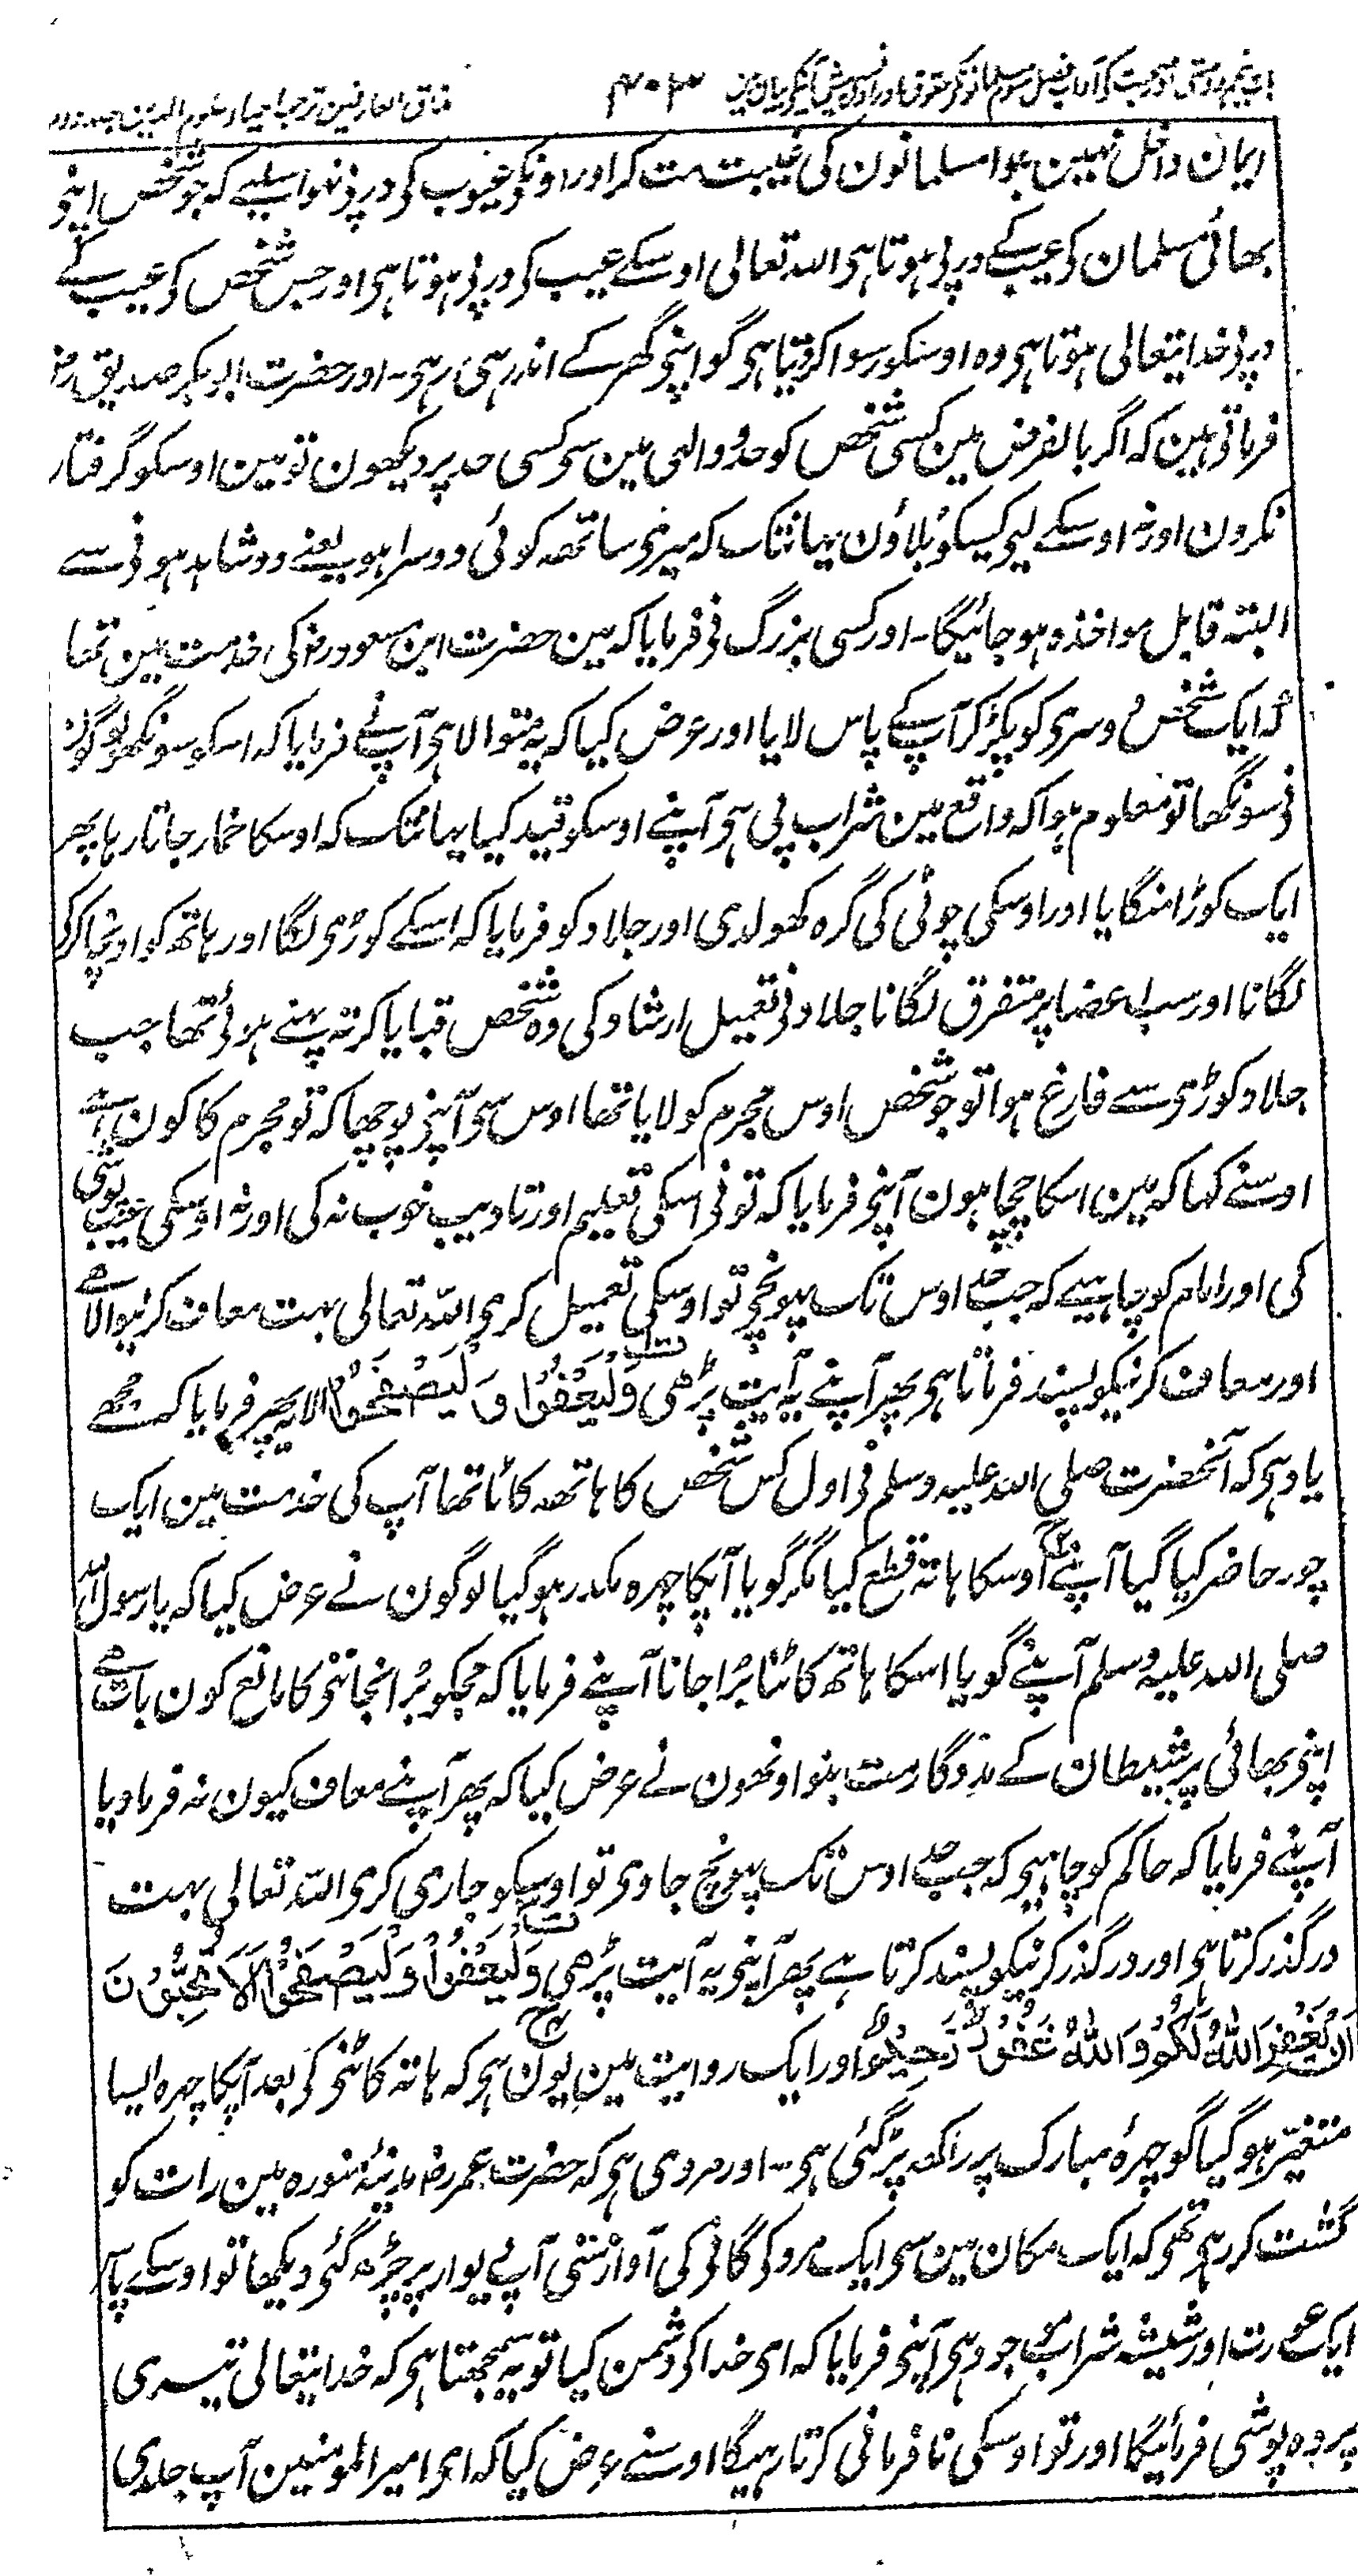 باب پنجم دوستی اور صحبت کے آداب فصل سوم مسلمانونکے حقوق اور اونسے پیش آنیکے بیان مین ۴۰۳ مذاق العارفین ترجمہ احیاء علوم الدین جلد دوم
ایمان داخل نہین ہوا مسلمانون کی غیبت مت کرو اور اونکی عیوب کی درپی نہو اسلیے کہ جو شخص اپنی
بھائی مسلمان کی عیب کے درپی ہوتا ہی اللہ تعالی اوسکے عیب کی درپی ہوتا ہی اور جس شخص کی عیب کے
درپی خدایتعالی ہوتا ہی وہ اوسکو رسوا کردیتا ہی گو اپنی گھر کے اندر ہی رہی۔ اور حضرت ابوبکر صدیق رض
فرماتی ہین کہ اگر بالفرض مین کسی شخص کو حدود الہی مین سی کسی حد پر دیکھون تو مین اوسکو گرفتار
نکرون اور نہ اوسکے لیی کسیکو بلاؤن یہانتک کہ میری ساتھہ کوئی دوسرا ہو یعنے دو شاہد ہونی سے
البتہ قابل مواخذہ ہو جائیگا۔ اور کسی بزرگ نی فرمایا کہ مین حضرت ابن مسعود رض کی خدمت مین تھا
کہ ایک شخص دوسری کو پکڑ کر آپ کے پاس لایا اور عرض کیا کہ یہ متوالا ہی آپنے فرمایا کہ اسکو سونگھو لوگون
نی سونگھا تو معلوم ہوا کہ واقع مین شراب پی ہی آپنے اوسکو قید کیا یہانتک کہ اوسکا خمار جاتا رہا پھر
ایک کوڑا منگایا اور اوسکی چوٹی کی گرہ کھولدی اور جلاد کو فرمایا کہ اسکے کوڑی لگا اور ہاتھ کو اونچا کرکی
لگانا اور سب اعضا پر متفرق لگانا جلاد نی تعمیل ارشاد کی وہ شخص قبا یا کرتہ پہنے ہوئی تھا جب
جلاد کوڑی سے فارغ ہوا تو جو شخص اوس مجرم کو لایا تھا اوس سی آپنی پوچھا کہ تو مجرم کا کون ہے
اوسنے کہا کہ مین اسکا چچا ہون آپنی فرمایا کہ تونی اسکی تعلیم اور تادیب خوب نہ کی اور نہ اوسکی عیب پوشی
کی اور امام کو چاہیے کہ جب حد اوس تک پہونچی تو اوسکی تعمیل کری اللہ تعالی بہت معاف کرنیوالا ہے
اور معاف کرنیکو پسند فرماتا ہی پھر آپنے یہ آیت پڑھی وَلْيَعْفُوا وَلْيَصْفَحُوا الایہ پھر فرمایا کہ مجھے
یاد ہی کہ آنحضرت صلی اللہ علیہ وسلم نی اول کس شخص کا ہاتھہ کاٹا تھا آپ کی خدمت مین ایک
چور حاضر کیا گیا آپنے اوسکا ہاتہ قطع کیا مگر گویا آپکا چہرہ مکدر ہو گیا لوگون نے عرض کیا کہ یا رسول اللہ
صلی اللہ علیہ وسلم آپنے گویا اسکا ہاتھ کاٹنا بُرا جانا آپنے فرمایا کہ مجکو بُرا نجاننی کا مانع کون بات ہے
اپنی بھائی پر شیطان کے مددگار مت بنو اونھون نے عرض کیا کہ پھر آپنے معاف کیون نہ فرمادیا
آپنے فرمایا کہ حاکم کو چاہیی کہ جب حد اوس تک پہونچ جاوی تو اوسکو جاری کری اللہ تعالی بہت
درگذر کرتا ہی اور درگذر کرنیکو پسند کرتا ہے پھر آپنی یہ آیت پڑھی وَلْيَعْفُوا وَلْيَصْفَحُوا أَلَا تُحِبُّونَ
أَنْ يَغْفِرَ اللَّهُ لَكُمْ وَاللَّهُ غَفُورٌ رَحِيمٌ اور ایک روایت مین یون ہی کہ ہاتہ کاٹنی کی بعد آپکا چہرہ ایسا
متغیر ہو گیا گو چہرۂ مبارک پر راکھہ پڑ گئی ہی۔ اور مروی ہی کہ حضرت عمر رض مدینۂ منورہ مین رات کو
گشت کر رہی تھی کہ ایک مکان مین سی ایک مرد کی گانی کی آواز سنی آپ دیوار پر چڑھ گئی دیکھا تو اوسکے پاس
ایک عورت اور شیشہ شراب موجود ہی آپنی فرمایا کہ ای خدا کی دشمن کیا تو یہ سمجھتا ہی کہ خدایتعالی تیری
پردہ پوشی فرمائیگا اور تو اوسکی نافرمانی کرتا رہیگا اوسنے عرض کیا کہ ای امیر المومنین آپ جلدی